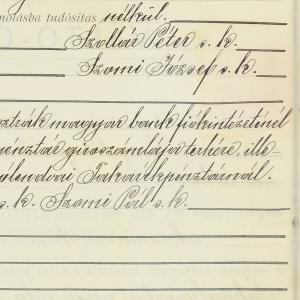 molásba tudósitás nélkül.
Szollár Péter s. k.
Szomi József s. k.
osztrák magyar bank fiókintézeténél
pénztár giroszámlája terhére, ille
alendvai Takarékpénztárnál.
s. k. Szomi Pál s. k.